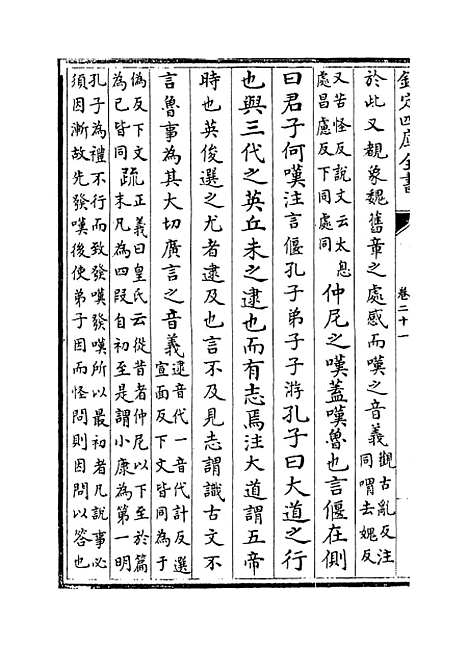 欽定四庫全書
卷二十一
於此又覩象魏舊章之處感而嘆之音義
觀古亂反注
同喟去媿反
又苦怪反說文云太息
處昌慮反下同處同
仲尼之嘆蓋嘆魯也言偃在側
曰君子何嘆注言偃孔子弟子子游孔子曰大道之行
也與三代之英丘未之逮也而有志焉注大道謂五帝
時也英俊選之尤者逮及也言不及見志謂識古文不
言魯事為其大切廣言之音義
逮音代一音代計反選
宣面反下文皆同為于
偽反下文
為已皆同
疏
正義曰皇氏云從昔者仲尼以下至於篇
末凡為四段自初至是謂小康為第一明
孔子為禮不行而致發嘆發嘆所以最初者凡說事必
須因漸故先發嘆後使弟子因而怪問則因問以答也